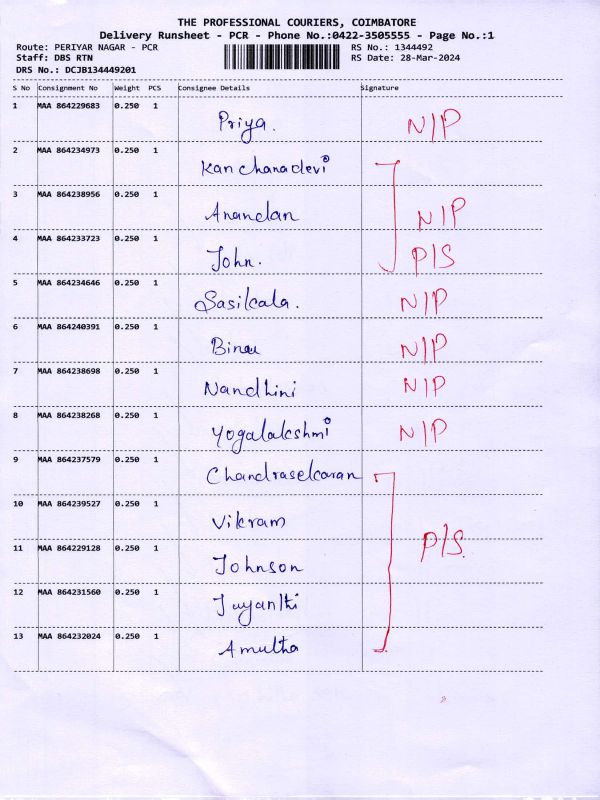 THE PROFESSIONAL COURIERS, COIMBATORE
Delivery Runsheet - PCR - Phone No.:0422-3505555 - Page No.:1
Route: PERIYAR NAGAR - PCR RS No.: 1344492
Staff: DBS RTN RS Date: 28-Mar-2024
DRS No.: DCJB134449201
S No Consignment No Weight PCS Consignee Details Signature
1 MAA 864229683 0.250 1 Priya. N/P
2 MAA 864234973 0.250 1 Kanchanadevi
3 MAA 864238956 0.250 1 Anandan N/P
4 MAA 864233723 0.250 1 John. P/S
5 MAA 864234646 0.250 1 Sasikala. N/P
6 MAA 864240391 0.250 1 N/P
7 MAA 864238698 0.250 1 Nandhini N/P
8 MAA 864238268 0.250 1 Yogalakshmi N/P
9 MAA 864237579 0.250 1 Chandrasekaran
10 MAA 864239527 0.250 1 Vikram P/S.
11 MAA 864229128 0.250 1 Johnson
12 MAA 864231560 0.250 1
13 MAA 864232024 0.250 1 Amutha